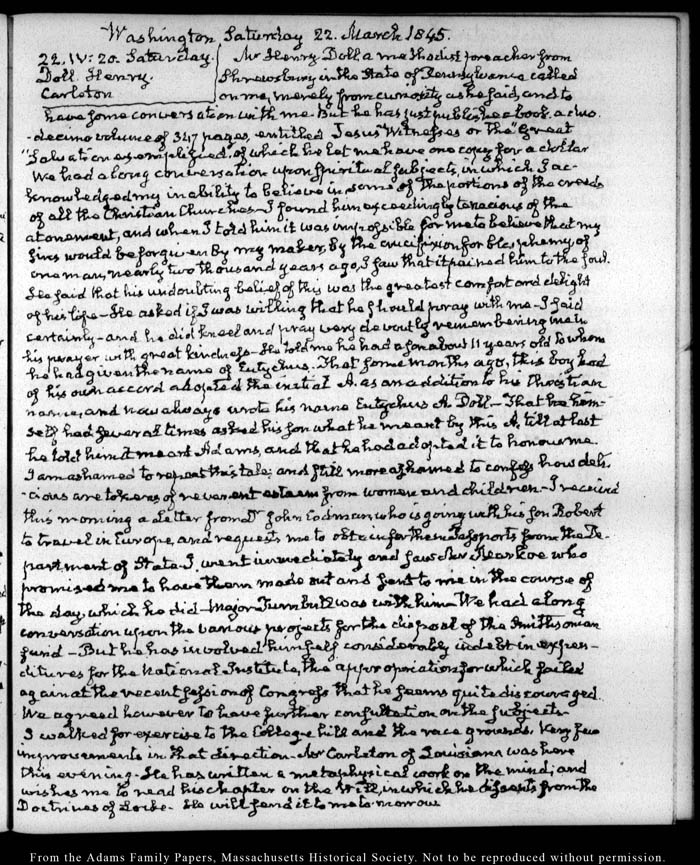 Washington Saturday 22. March 1845.
22. IV: 20. Saturday.
Doll Henry.
Carleton
Mr Henry Doll a methodist preacher from
Shrewsbury in the State of Pennsylvania called
on me, merely from curiosity as he said, and to
have some conversation with me. But he has just published a book a duo-
-decimo volume of 347 pages, entitled Jesus' Witnesses or the "Great
"Salvation exemplified", of which he let me have one copy for a dollar
We had a long conversation upon spiritual subjects, in which I ac-
knowledged my inability to believe in some of the portions of the creeds
of all the Christian Churches—I found him exceedingly tenacious of the
atonement, and when I told him it was impossible for me to believe that my
sins would be forgiven by my maker, by the crucifixion for blasphemy, of
one man, nearly two thousand years ago, I saw that it pained him to the soul.
He said that his undoubting belief of this was the greatest comfort and delight
of his life—He asked if I was willing that he should pray with me—I said
certainly—and he did kneel and pray very devoutly remembering me in
his prayer with great kindness—He told me he had a son about 11 years old to whom
he had given the name of Eutychus. That some months ago, this boy had
of his own accord adopted the initial A. as an addition to his Christian
name, and now always wrote his name Eutychus A. Doll—That he him-
self had several times asked his son what he meant by this A, till at last
he told him it meant Adams, and that he had adopted it to honour me.
I am ashamed to repeat this tale; and still more ashamed to confess how deli-
-cious are tokens of reverent esteem from women and children—I received
this morning a Letter from Dr John Codman, who is going with his son Robert
to travel in Europe, and requests me to obtain for them Passports from the De-
partment of State. I went immediately and saw Mr Markoe who
promised me to have them made out and sent to me in the course of
the day, which he did—Major Turnbull was with him. We had a long
conversation upon the various projects for the disposal of the Smithsonian
fund—But he has involved himself considerably in debt in expen-
ditures for the National Institute, the appropriation for which failed
again at the recent session of Congress that he seems quite discouraged
We agreed however to have further consultation on the subject—
I walked for exercise to the College hill and the race grounds. Very few
improvements in that direction—Mr Carleton of Louisiana was here
this evening. He has written a metaphysical work on the mind; and
wishes me to read his chapter on the Will, in which he dissents from the
Doctrines of Locke—He will send it to me to-morrow
From the Adams Family Papers, Massachusetts Historical Society. Not to be reproduced without permission.